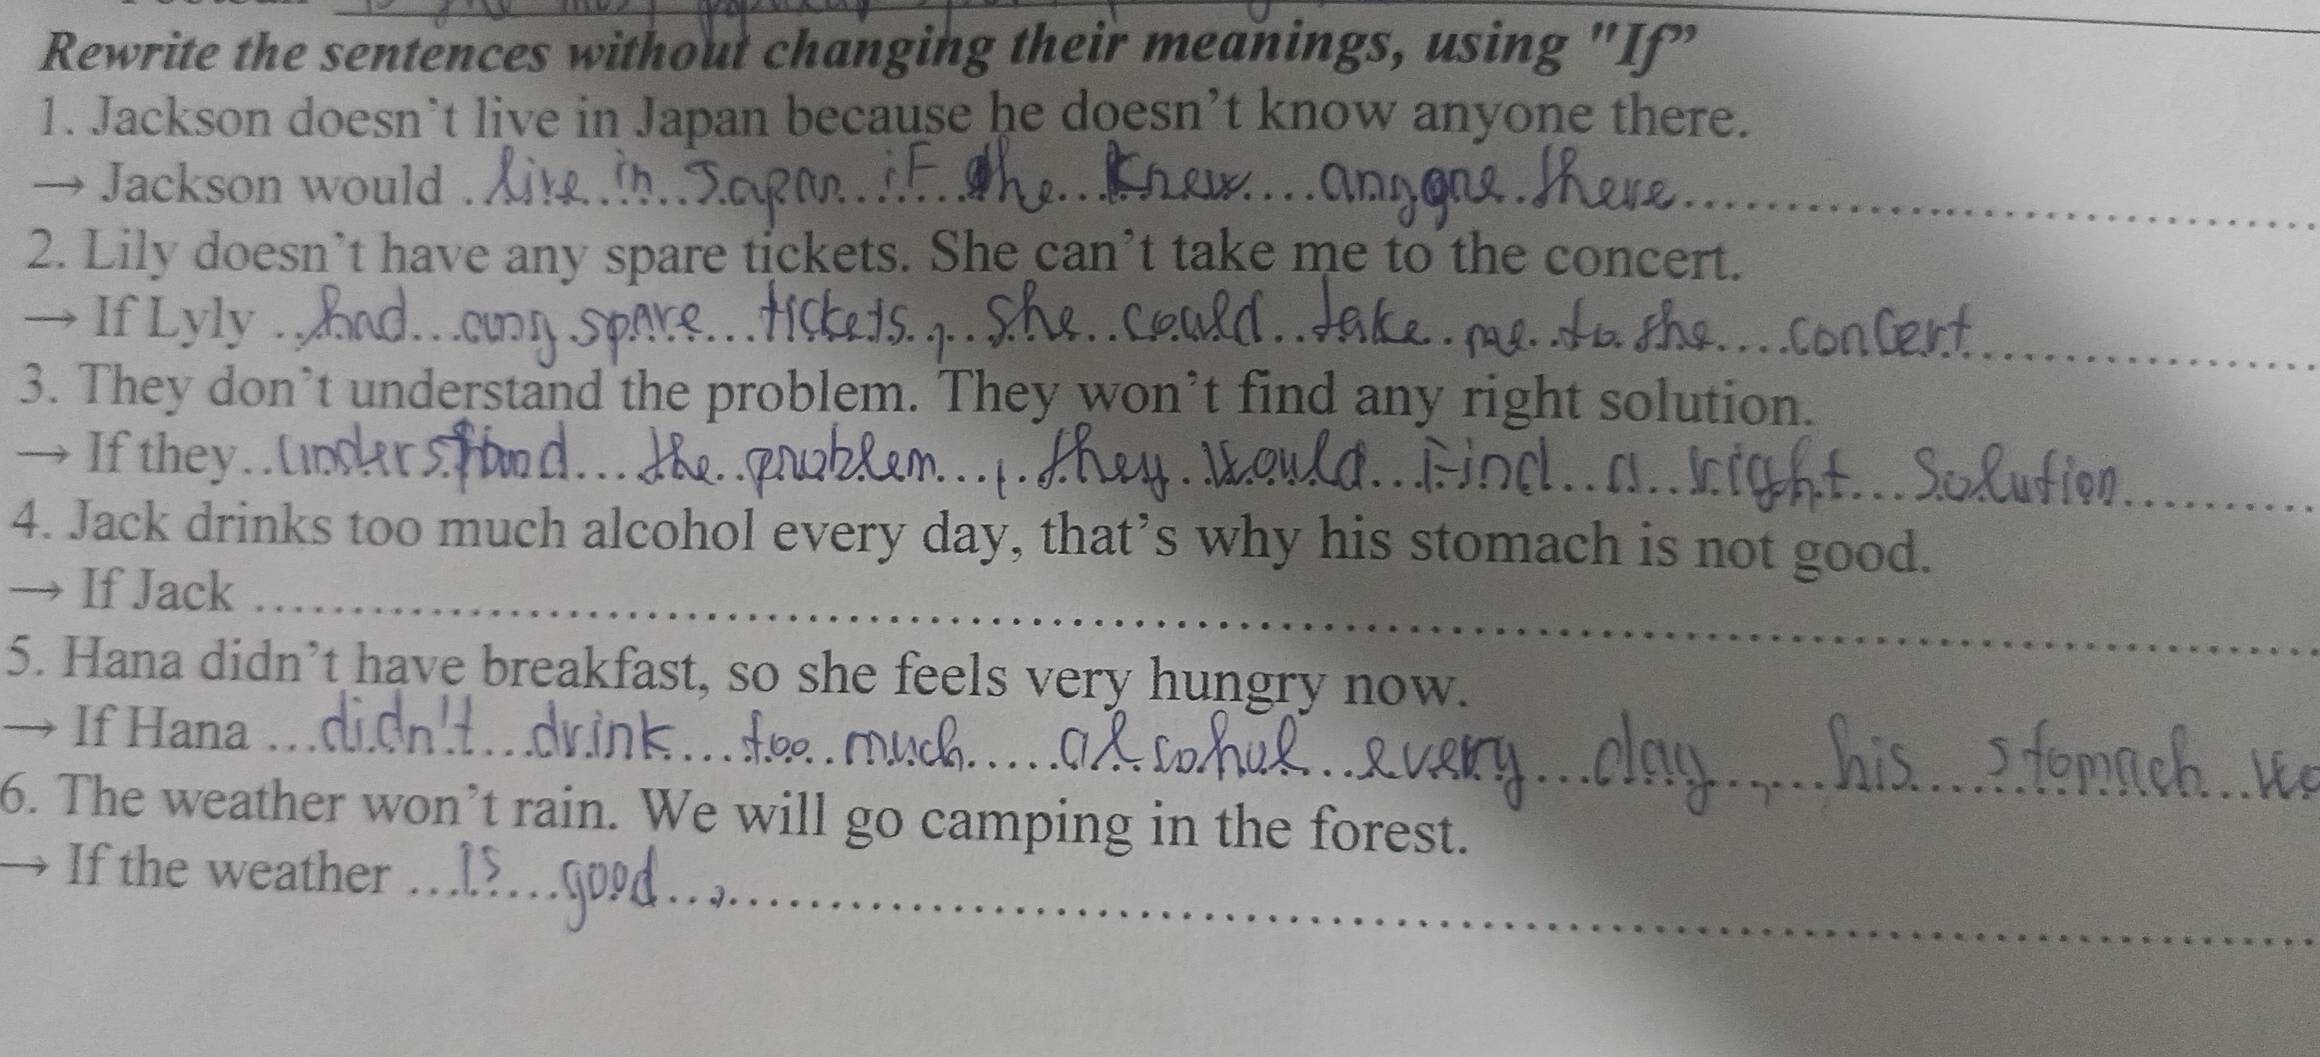 Rewrite the sentences without changing their meanings, using "If”
1. Jackson doesn’t live in Japan because he doesn’t know anyone there.
→ Jackson would live in Japan if he knew anyone there
2. Lily doesn’t have any spare tickets. She can’t take me to the concert.
→ If Lyly had any spare tickets, she could take me to the concert
3. They don’t understand the problem. They won’t find any right solution.
→ If they understood the problem, they would find a right solution
4. Jack drinks too much alcohol every day, that’s why his stomach is not good.
→ If Jack
5. Hana didn’t have breakfast, so she feels very hungry now.
→ If Hana didn't drink too much alcohol every day, his stomach
6. The weather won’t rain. We will go camping in the forest.
→ If the weather is good,